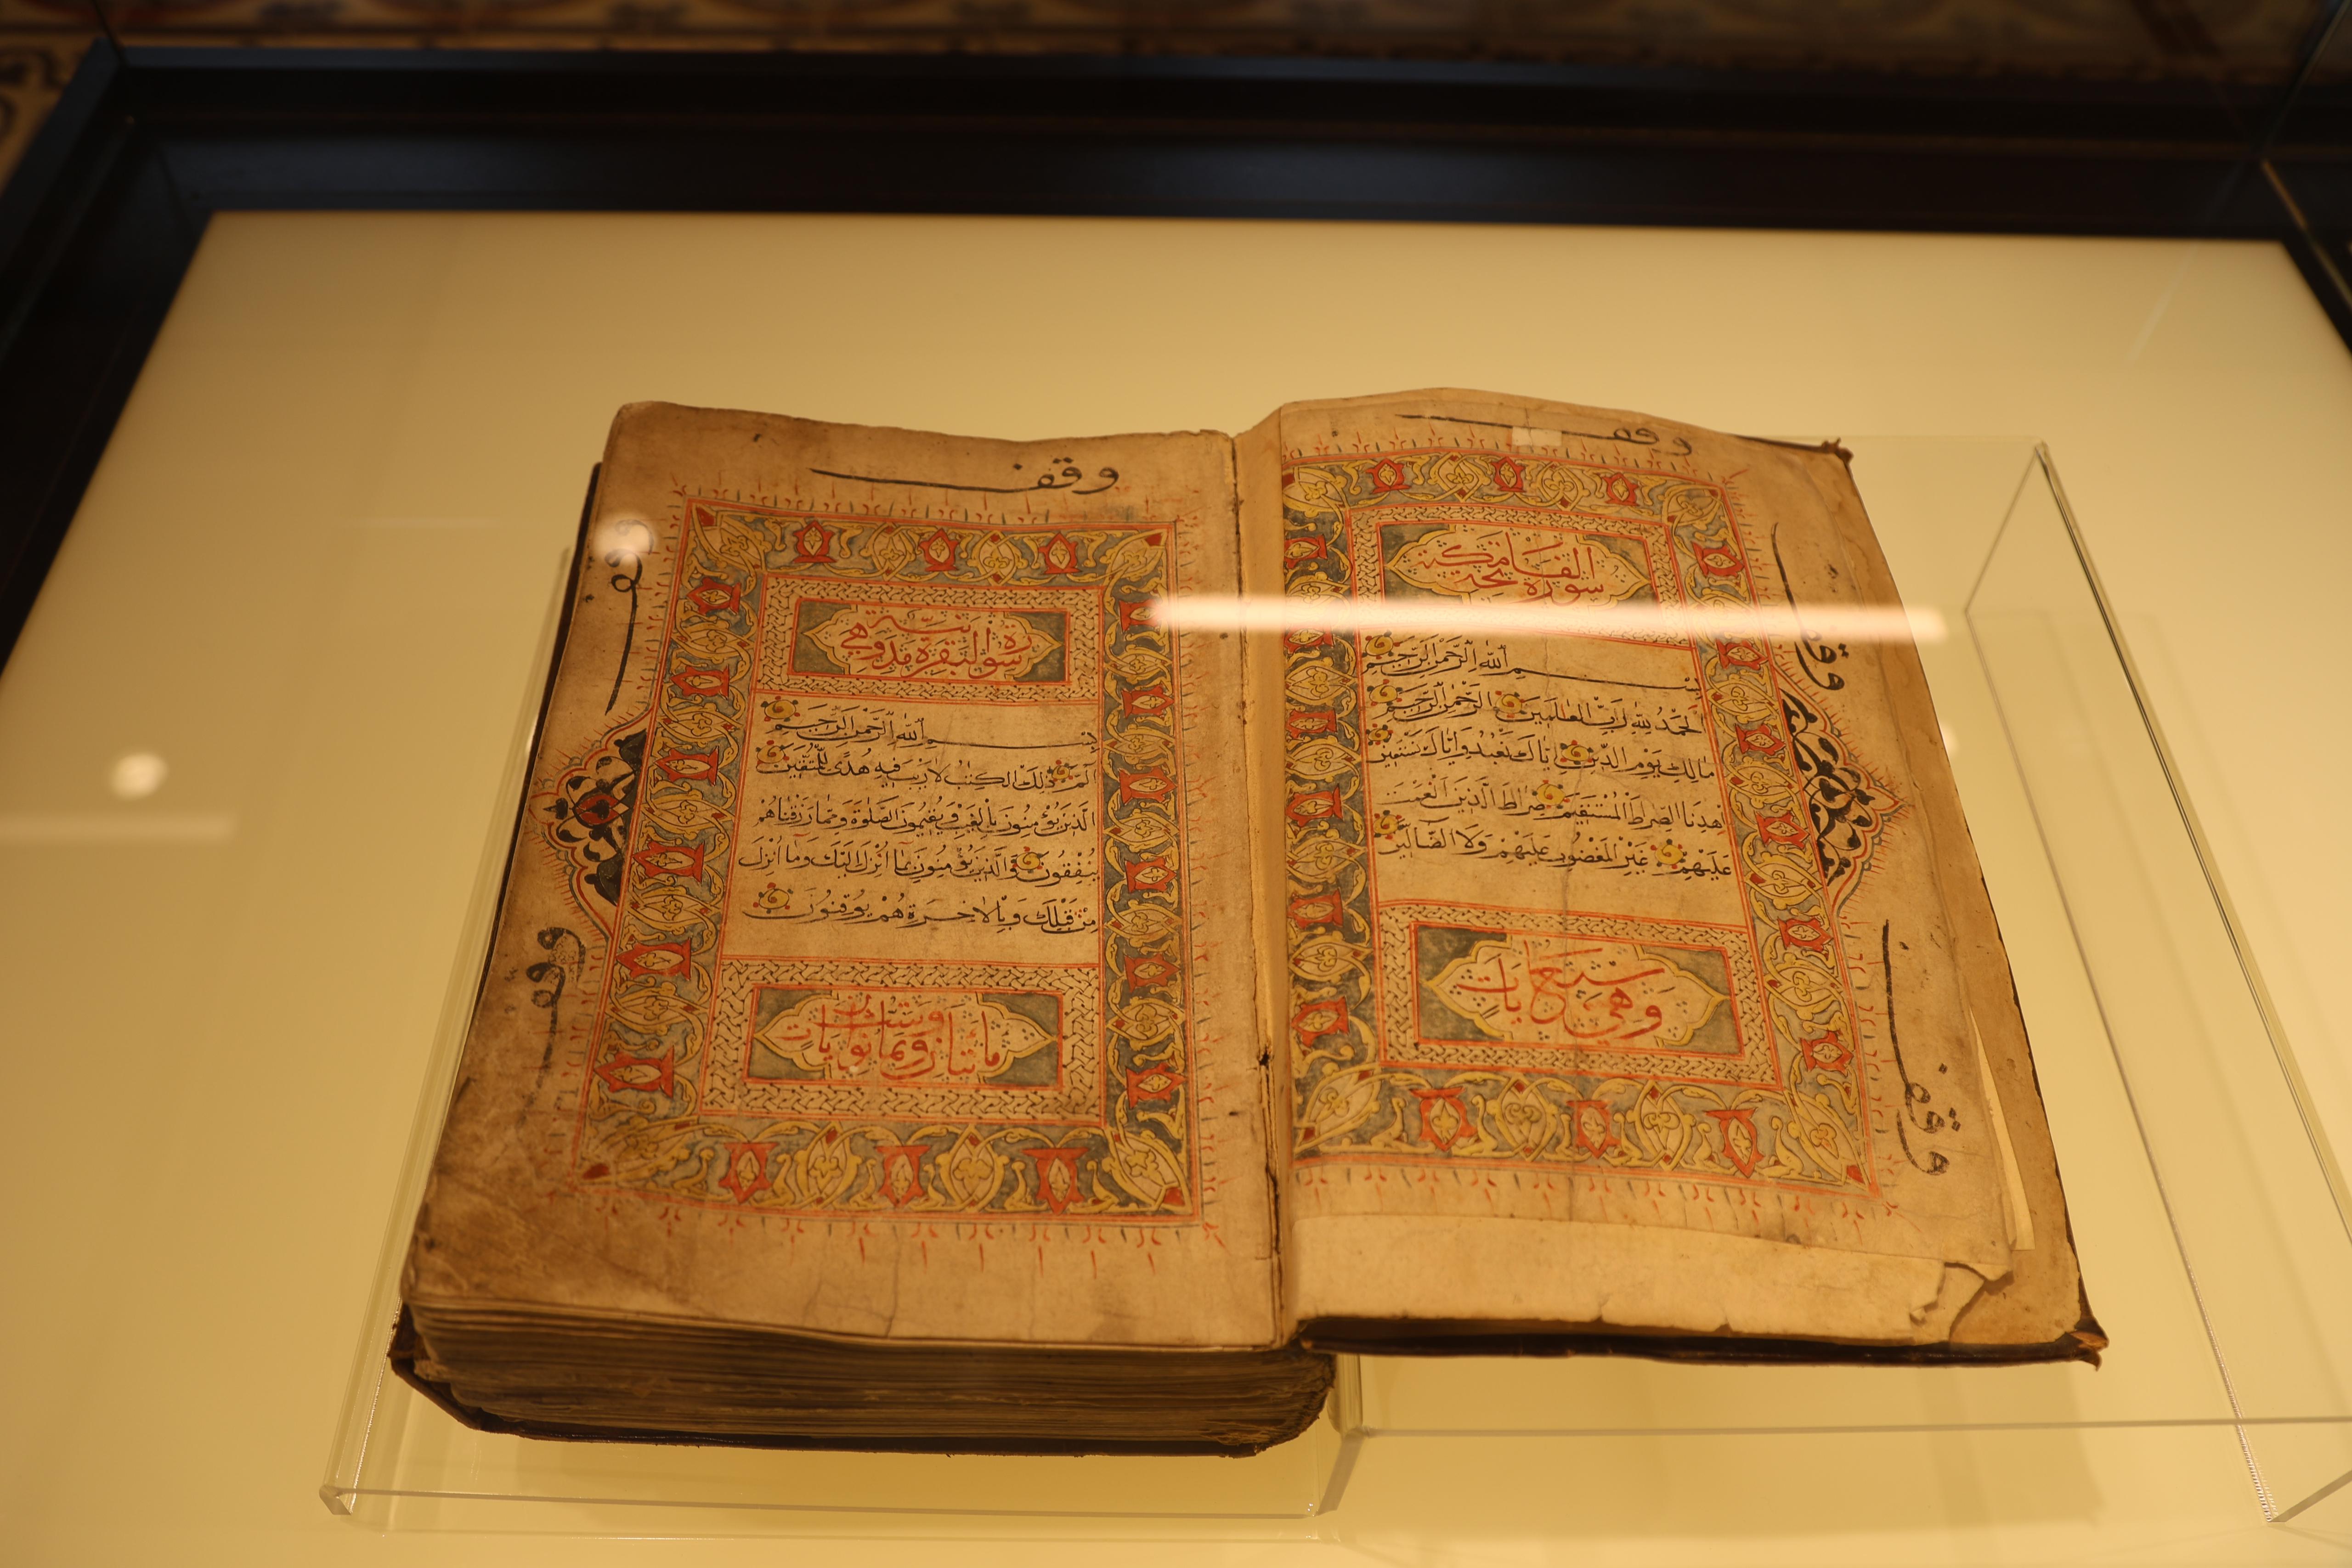 وقف
سورة الفاتحة مكية
بسم الله الرحمن الرحيم
الحمد لله رب العلمين الرحمن الرحيم
مالك يوم الدين اياك نعبد واياك نستعين
اهدنا الصراط المستقيم صراط الذين انعمت
عليهم غير المغضوب عليهم ولا الضالين
وهي سبع ايات
وقف
وقف
وقف
سورة البقرة مدنية وهي
بسم الله الرحمن الرحيم
الم ذلك الكتب لا ريب فيه هدى للمتقين
الذين يؤمنون بالغيب ويقيمون الصلوة ومما رزقناهم
ينفقون والذين يؤمنون بما انزل اليك وما انزل
من قبلك وبالاخرة هم يوقنون
مائتان وثمانون ايات
وقف
وقف